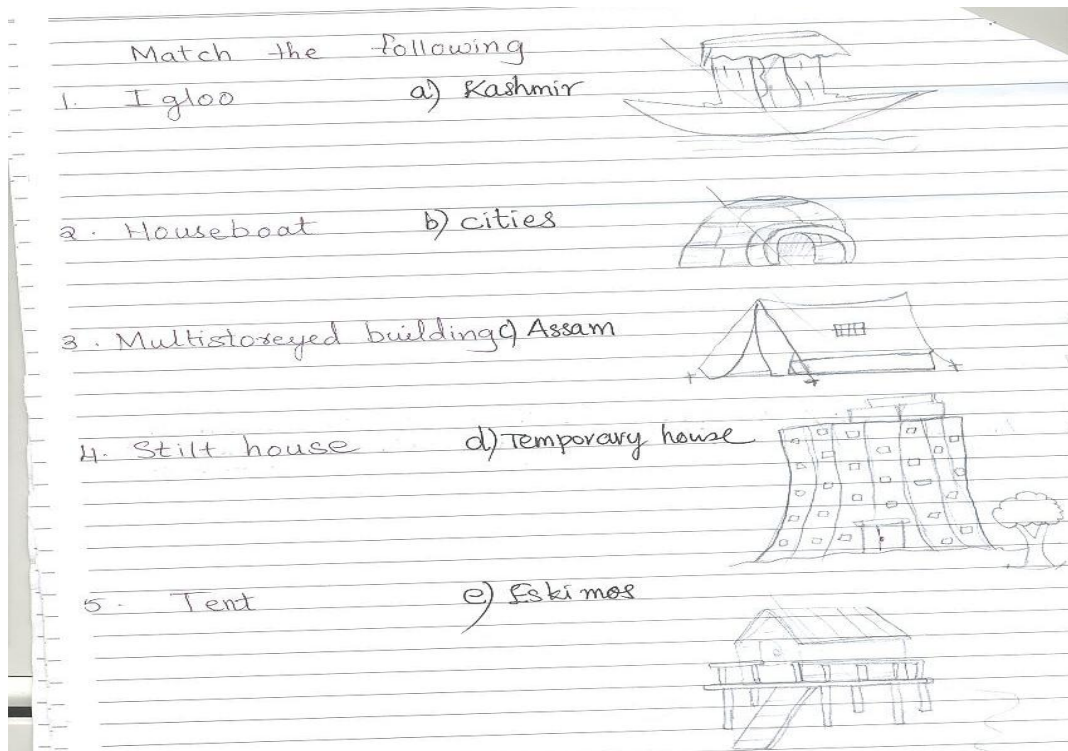 Match the following
1. Igloo a) Kashmir
2. Houseboat b) cities
3. Multistoreyed building c) Assam
4. Stilt house d) Temporary house
5. Tent e) Eskimos